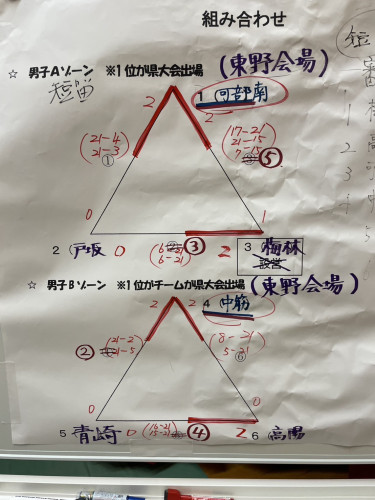 組み合わせ
☆ 男子Aゾーン ※1位が県大会出場 (東野会場)
短笛
1 可部南
2 2
(21-4
21-3)
①
(17-21
21-15
7-15)
⑤
0 1
2 戸坂 0 (6-21
6-21) ③ 2 3 梅林
☆ 男子Bゾーン ※1位がチームが県大会出場 (東野会場)
2 2 4 中筋
② (21-2)
21-5
(8-21
5-21)
⑥
0 0
5 青崎 0 (16-21
15-21) ④ 2 6 高陽
短
審
1
2 高
3